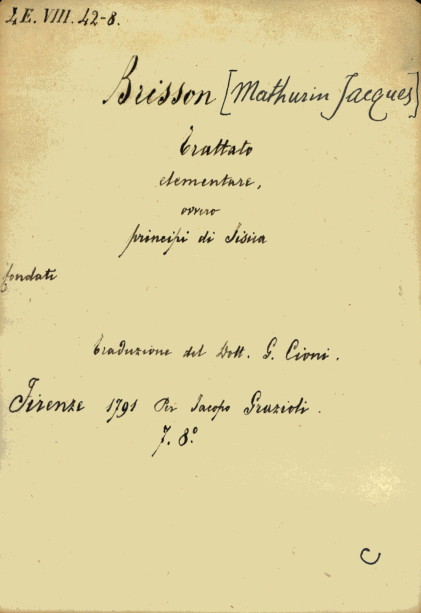 4 E. VIII. 42-8.
Brisson [Mathurin Jacques]
Trattato
elementare,
ovvero
principi di Fisica
fondati
Traduzione del Dott. G. Cioni.
Firenze 1791 Per Jacopo Grazioli.
7. 8º
C